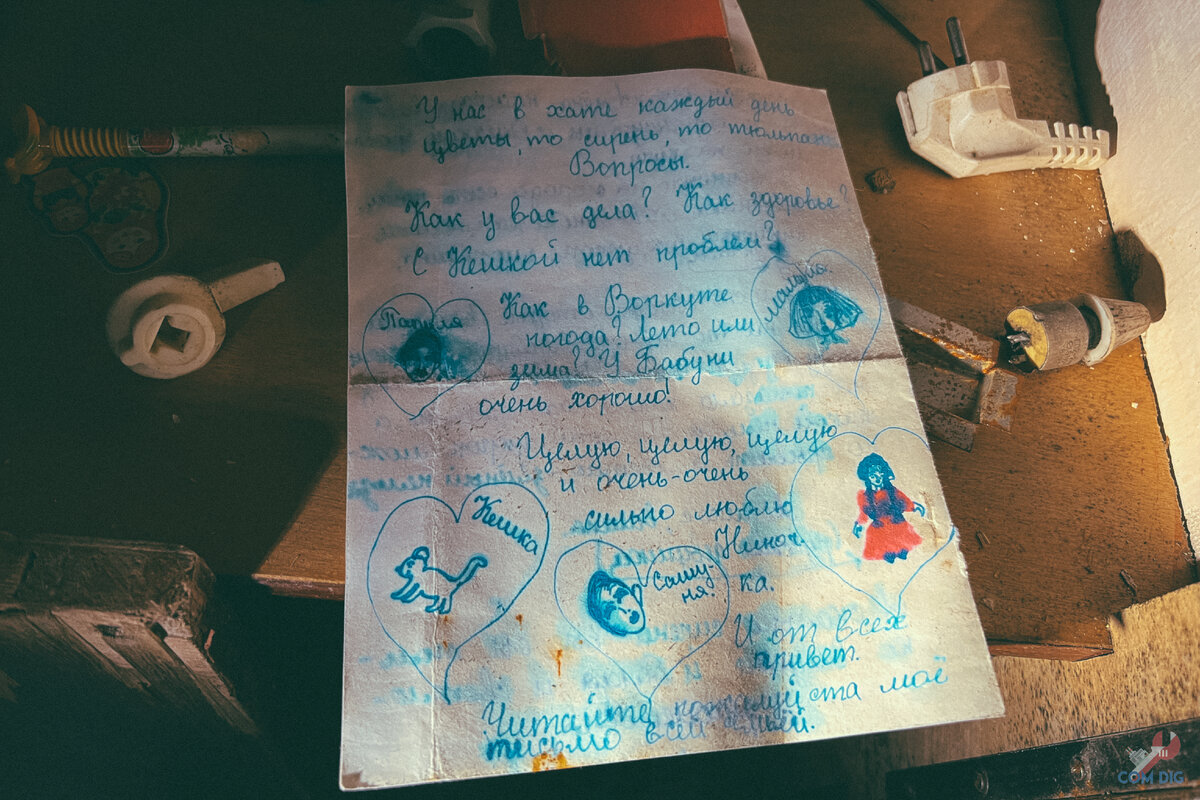 У нас в хате каждый день
цветы, то сирень, то тюльпаны
Вопросы.
Как у вас дела? Как здоровье?
С Кешкой нет проблем?
Папуля
Как в Воркуте
погода? Лето или
зима? У Бабуни
очень хорошо!
мамуля
Целую, целую, целую
и очень-очень
сильно люблю
Ниноч-
ка.
Кешка
Сашу-
ня.
И от всех
привет.
Читайте пожалуйста моё
письмо всей
COM DIG